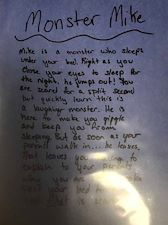 Monster Mike
Mike is a monster who sleeps
under your bed. Right as you
close your eyes to sleep for
the night, he jumps out! You
are scared for a split second
but quickly learn this is
a laughing monster. He is
here to make you giggle
and keep you from
sleeping. But as soon as your
parents walk in... he leaves.
That leaves you trying to
explain to your
why you are
your bed
that Mike is